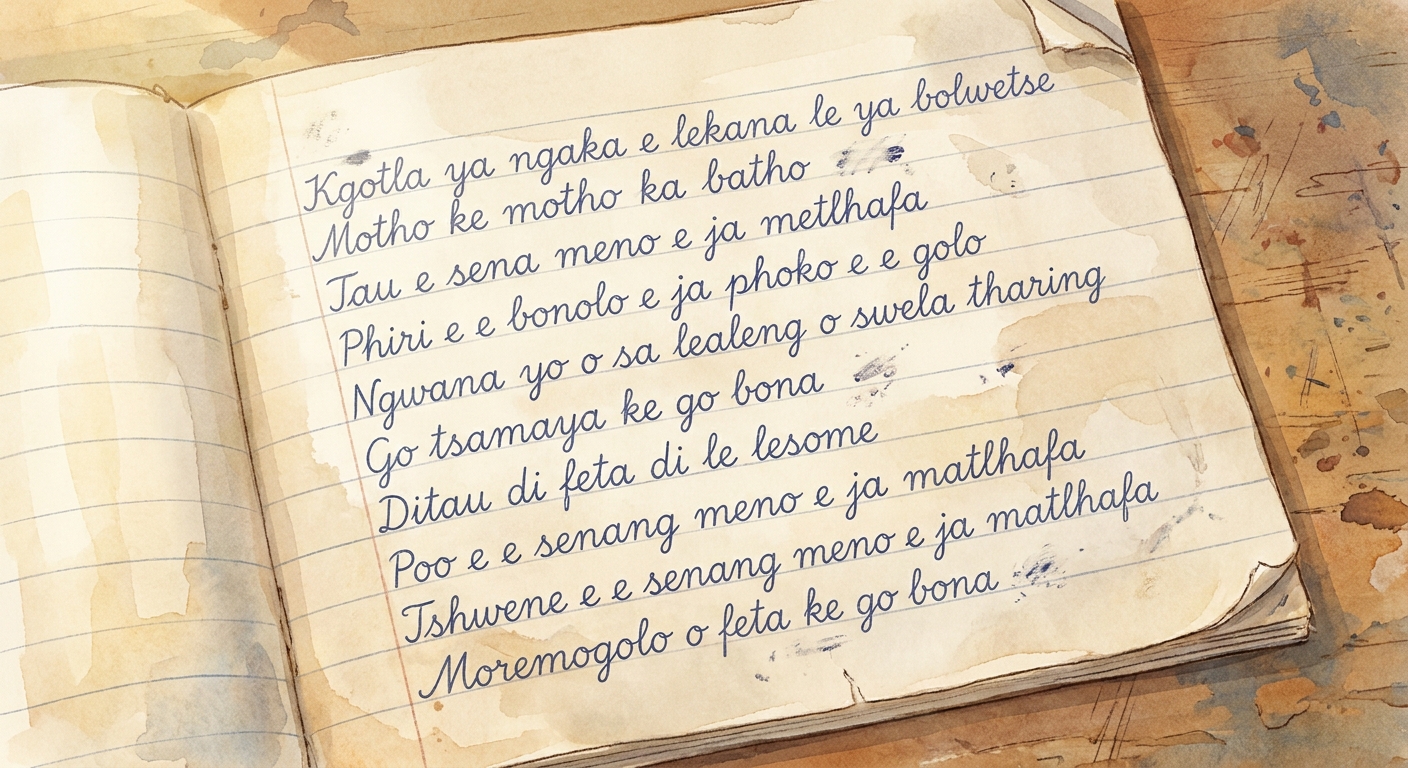 Kgotla ya ngaka e lekana le ya bolwetse
Motho ke motho ka batho
Tau e sena meno e ja metlhafa
Phiri e e bonolo e ja phoko e e golo
Ngwana yo o sa lealeng o swela tharing
Go tsamaya ke go bona
Ditau di feta di le lesome
Poo e e senang meno e ja matlhafa
Tshwene e e senang meno e ja matlhafa
Moremogolo o feta ke go bona